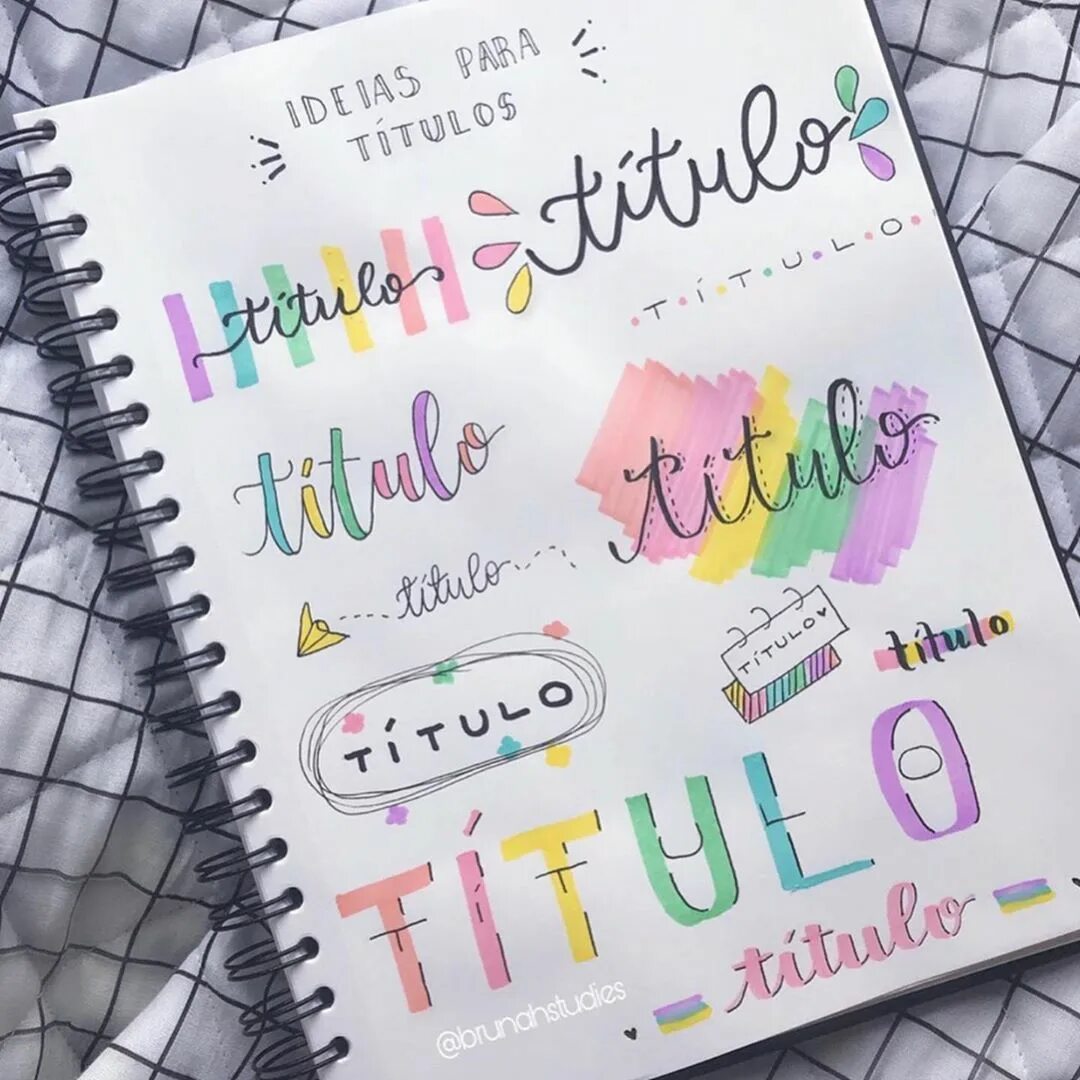 IDEIAS PARA
TÍTULOS
título
título
T·Í·T·U·L·O
título
título
título
TÍTULO
título
TÍTULO
TÍTULO
título
@brunahstudies